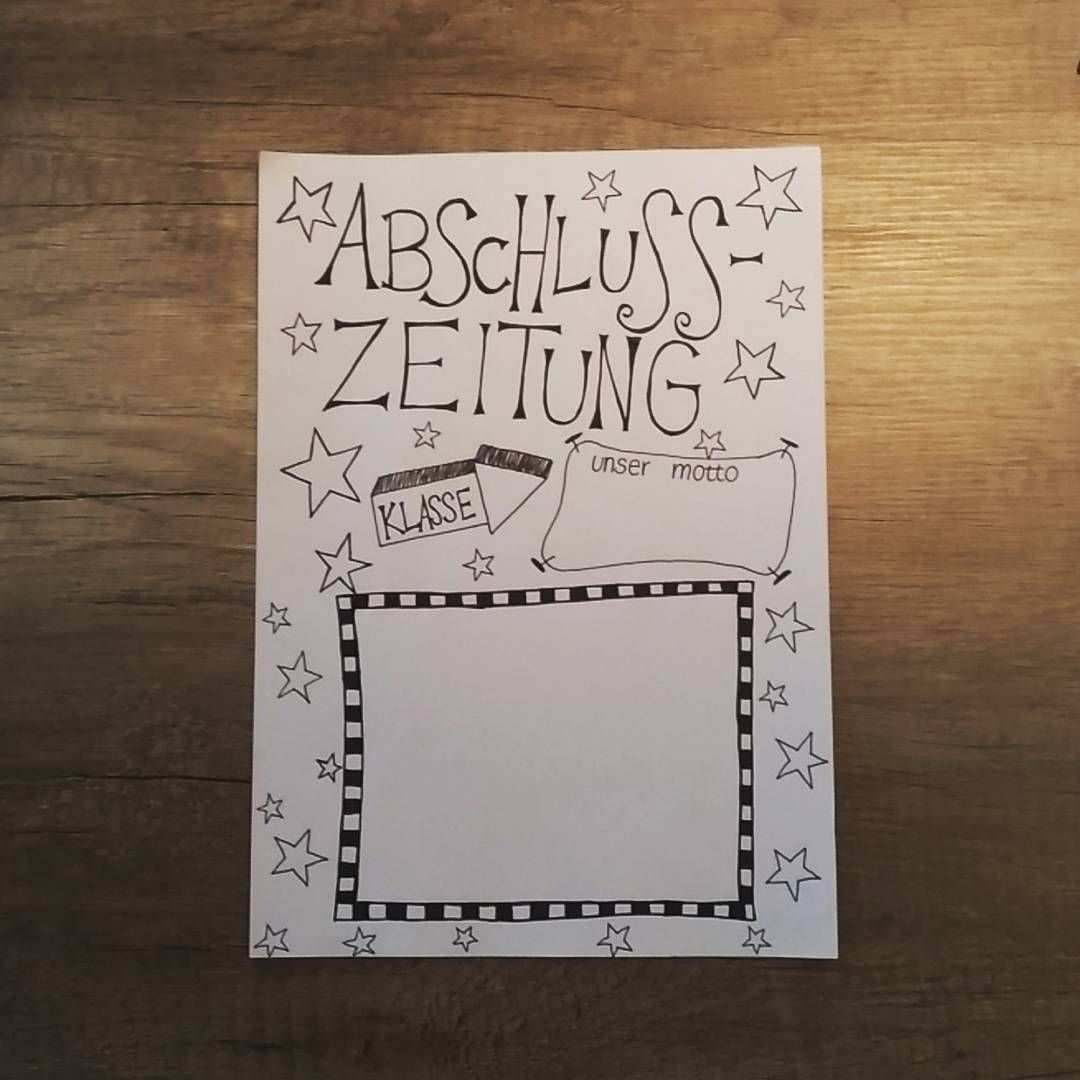 ABSCHLUSS-
ZEITUNG
KLASSE
unser motto